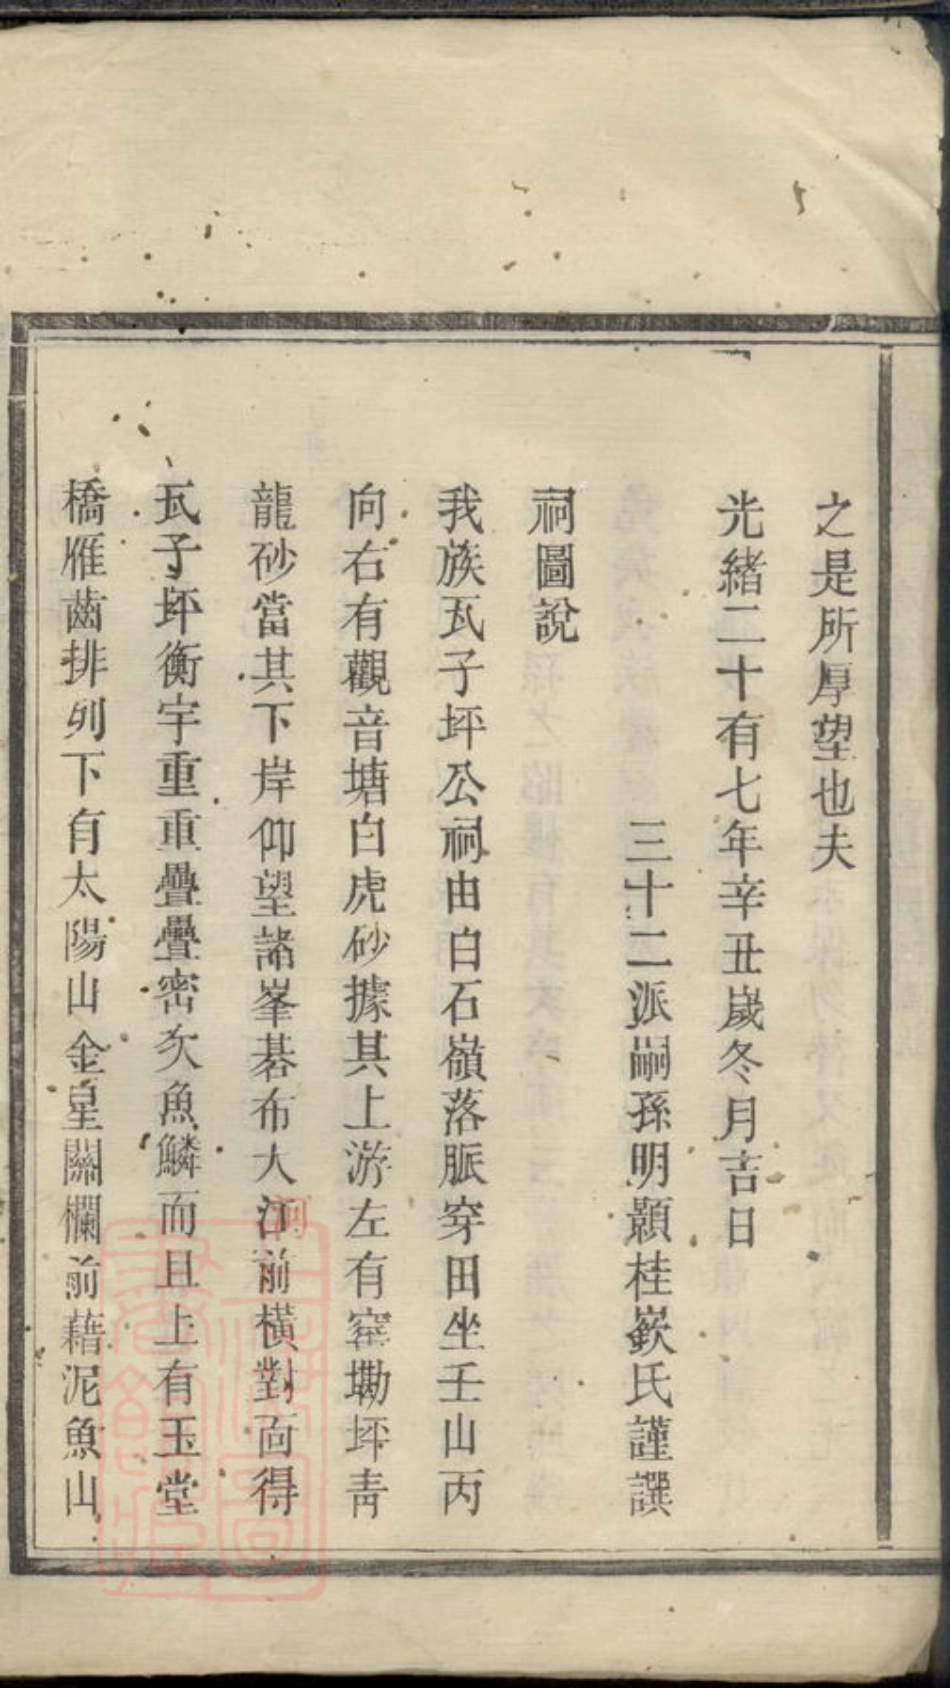 之是所厚望也夫
光緒二十有七年辛丑歲冬月吉日
三十二派嗣孫明顥桂嶔氏謹譔
祠圖說
我族瓦子坪公祠由白石嶺落脈穿田坐壬山丙
向右有觀音塘白虎砂據其上游左有窰墈坪青
龍砂當其下岸仰望諸峯碁布大江前橫對面得
瓦子坪衡宇重重疊疊密矣魚鱗而且上有玉堂
橋雁齒排列下有太陽山金星關欄前藉泥魚山